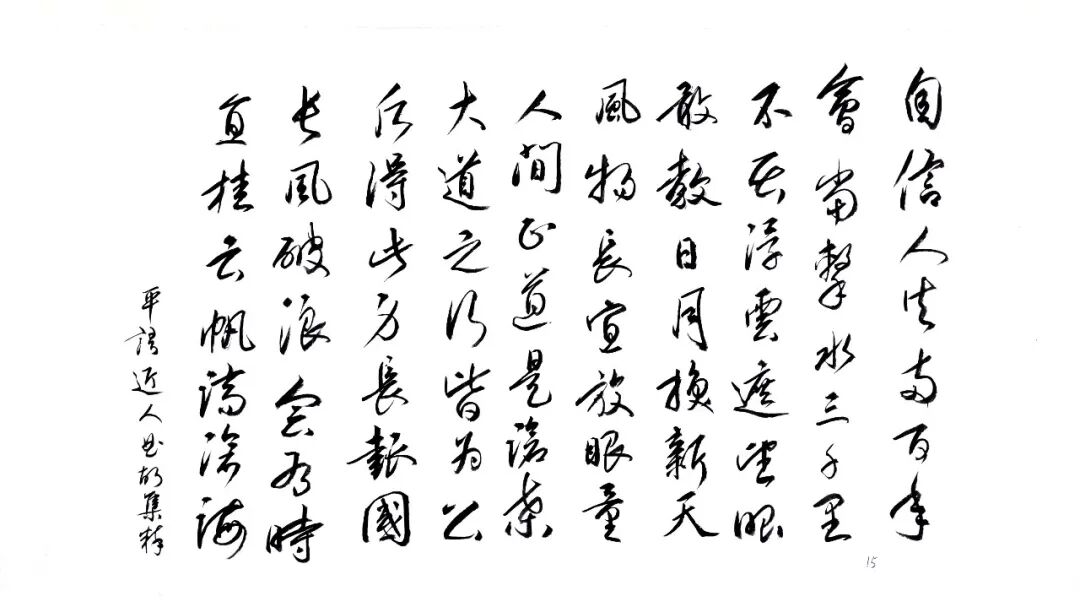 自信人生两百年
會當擊水三千里
不畏浮雲遮望眼
敢教日月換新天
風物長宜放眼量
人間正道是滄桑
大道之行皆为公
愿得此身長報國
长风破浪会有時
直挂云帆濟滄海
平語近人典故集粹
15